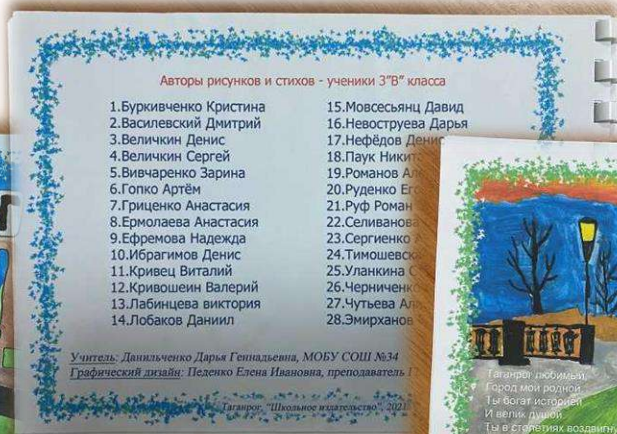 Авторы рисунков и стихов - ученики 3"В" класса
1.Буркивченко Кристина
2.Василевский Дмитрий
3.Величкин Денис
4.Величкин Сергей
5.Вивчаренко Зарина
6.Гопко Артём
7.Гриценко Анастасия
8.Ермолаева Анастасия
9.Ефремова Надежда
10.Ибрагимов Денис
11.Кривец Виталий
12.Кривошеин Валерий
13.Лабинцева виктория
14.Лобаков Даниил
15.Мовсесьянц Давид
16.Невоструева Дарья
17.Нефёдов Денис
18.Паук Никит
19.Романов
20.Руденко
21.Руф Роман
22.Селиванова
23.Сергиенко
24.Тимошевск
25.Уланкина
26.Черниченко
27.Чутьева
28.Эмирханов
Учитель: Данильченко Дарья Геннадьевна, МОБУ СОШ №34
Графический дизайн: Педенко Елена Ивановна, преподаватель
Таганрог, "Школьное издательство", 2021
Таганрог любимый,
Город мой родной
Ты богат историей
И велик душой
Ты в столетиях воздвигну